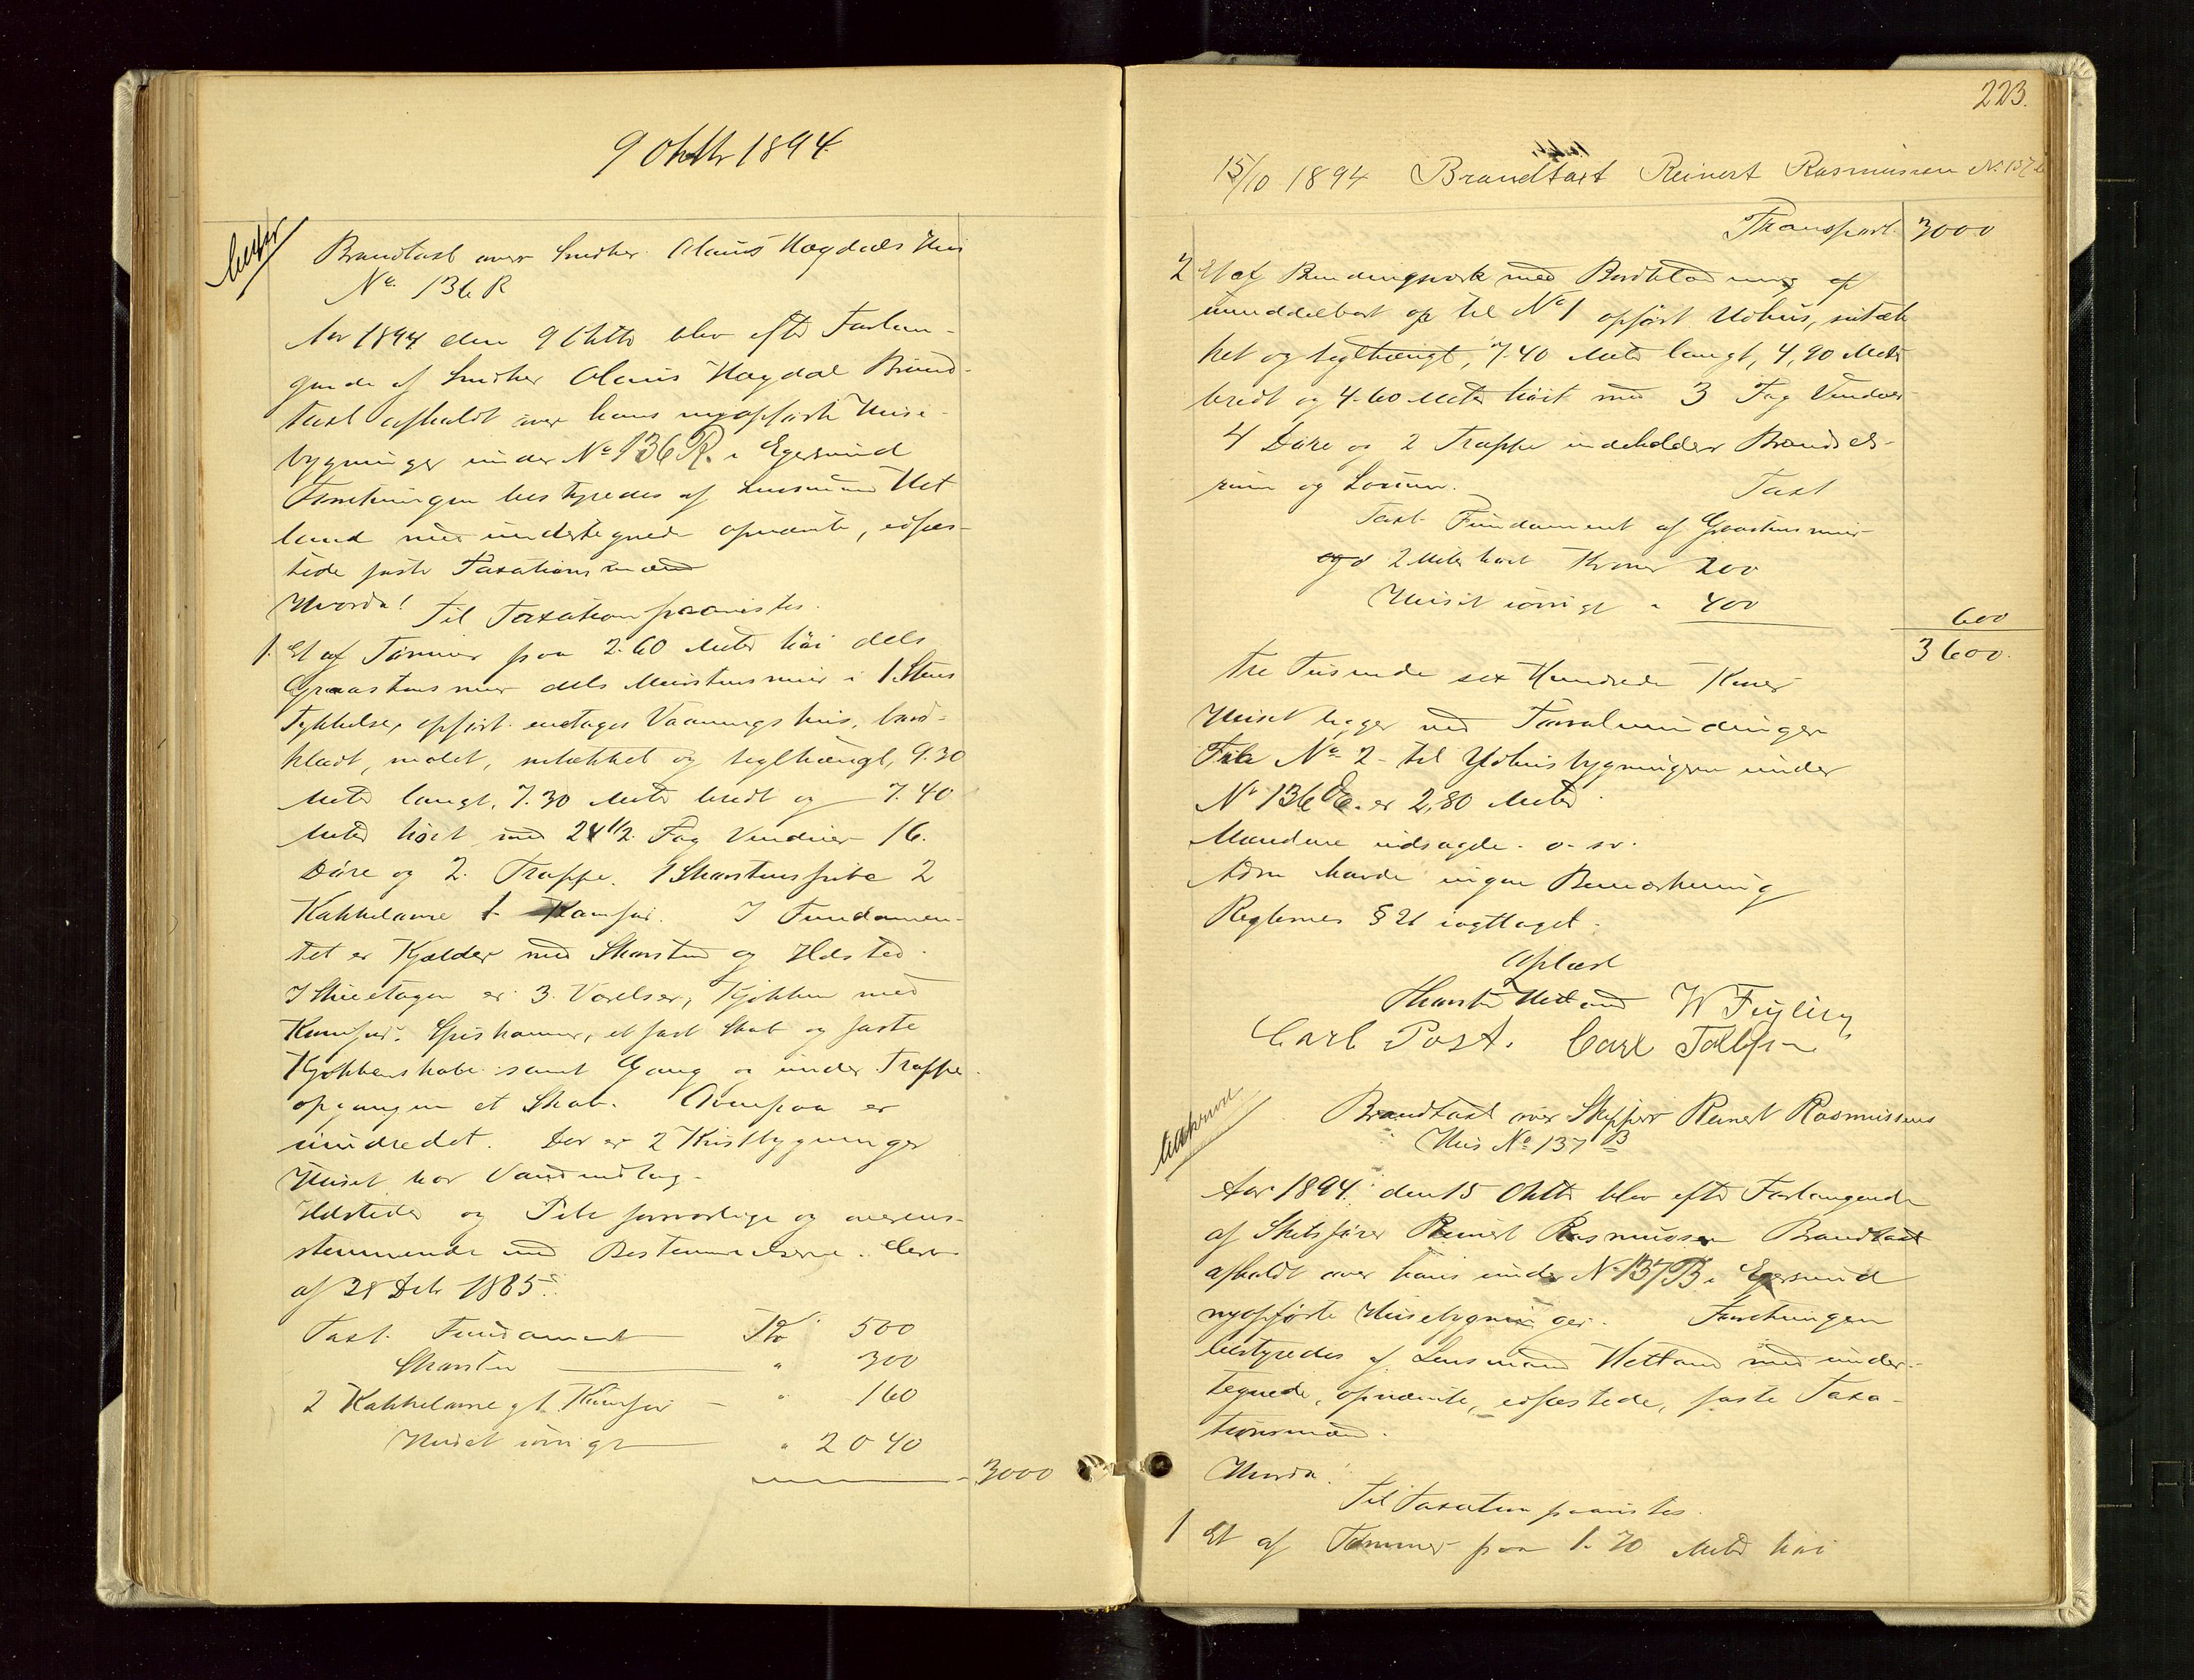 9 Oktbr 1894
Brandtaxt over Snedker Olaus Høgdals Hus
No. 136 R
Aar 1894 den 9 Oktb blev efter Forlan-
gende af Snedker Olaus Høgdal Brand-
taxt afholdt over hans nyopførte Huse-
bygninger under No 136 R. i Egersund
Forretningen bestyredes af Lensmand Het
land med undertegnede opnævnte, edfæs-
tede faste Taxationsmænd
Hvorda!
Til Taxation paavistes.
1. Et af Tømmer paa 2.60 Meter høi dels
Graastensmur dels Murstensmur i 1 Stens
Tykkelse, opført etages Vaaningshus, bord-
klædt, malet, sutækket og teglhængt, 9.30
Meter langt, 7.30 Meter bredt og 7.40
Meter høit med 24 1/2 Fag Vinduer 16.
Døre og 2 Trappe. 1 Skorstenspibe 2
Kakkelovne 1 Komfur. I Fundamen-
tet er Kjelder med Skorsten og Ildsted.
I Stueetagen er 3 Værelser, Kjøkken med
Komfur, Spiskammer, et fast Skab og faste
Kjøkkenskabe samt Gang og under Trappe-
opgangen et Skab. Ovenpaa er
uindredet. Der er 2 Kvistbygninger
Huset har Vandindlæg.
Ildsteder og Pibe forsvarlige og overens-
stemmende med Bestemmelserne
af 28 Deb 1885
Taxt. Fundament Kr 500
Skorsten " 300
2 Kakkelovne og 1 Komfur " 160
Huset iøvrigt " 2040
3000
223.
15/10 1894 Brandtaxt Reinert Rasmussen No 137 B
Transport 3000
2 Et af Bindingsverk med Bordklædning af
umiddelbart op til No 1 opført Udhus, sutæk
ket og teglhængt, 7.40 Meter langt, 4,90 Meter
bredt og 4.60 Meter høit med 3 Fag Vinduer
4 Døre og 2 Trappe indeholder Brændsels-
rum og Locum.
Taxt
Taxt Fundament af Graastensmur
2 Meter høit Kroner 200
Huset iøvrigt " 400
600
3600.
tre Tusinde sex Hundrede Kroner
Huset ligger ved
Fra No 2 til Udhusbygningen under
No 136 er 2,80 Meter
Mændene udsagde o. s. v.
Adm havde ingen Bemærkning
Reglernes § 21 iagttaget.
Oplæst
Hetland W Feyling
Carl Post. Carl Tollefsen
Brandtaxt over Skipper Reinert Rasmussens
Hus No 137 B
Aar 1894 den 15 Oktb blev efter Forlangende
af Skibsfører Reinert Rasmussen Brandtaxt
afholdt over hans under No 137 B i Egersund
nyopførte Husebygninger. Forretningen
bestyredes af Lensmand Hetland med under-
tegnede, opnævnte, edfæstede, faste Taxa-
tionsmænd.
Hvorda!
Til Taxation paavistes.
1 Et af Tømmer paa 1.70 Meter høi